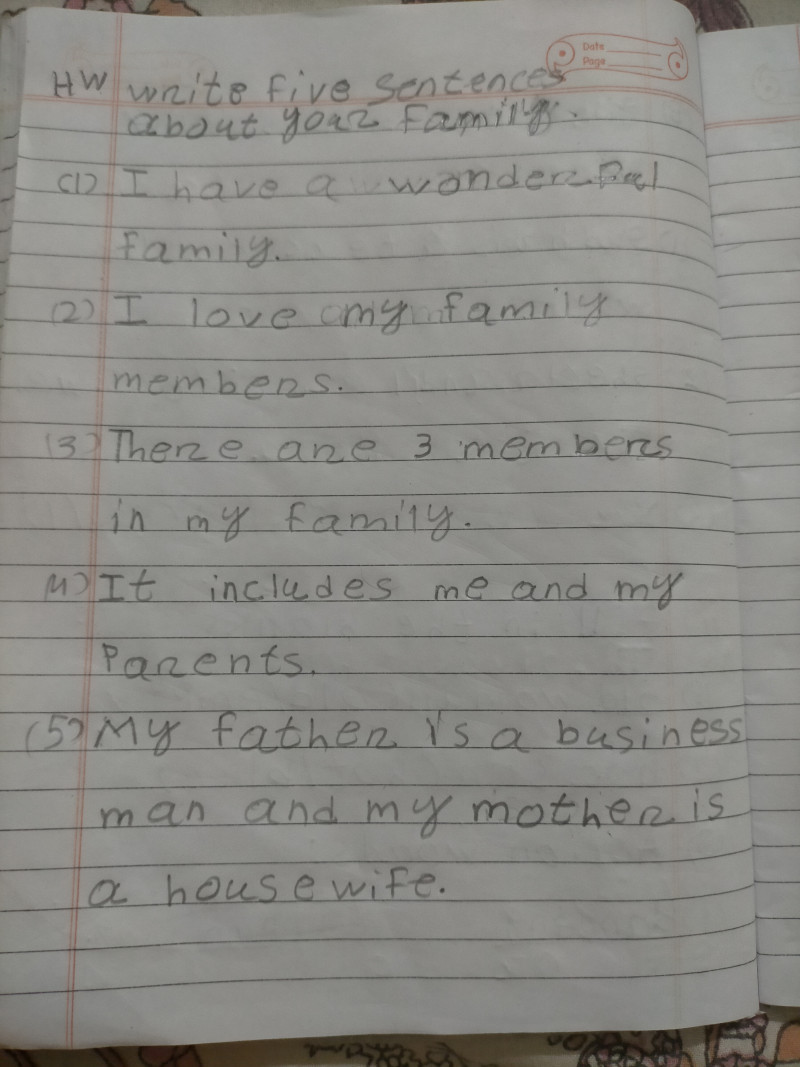 Date
Page
HW write five sentences
about your family.
(1) I have a wonderful
family.
(2) I love my family
members.
(3) There are 3 members
in my family.
(4) It includes me and my
Parents.
(5) My father is a business
man and my mother is
a housewife.